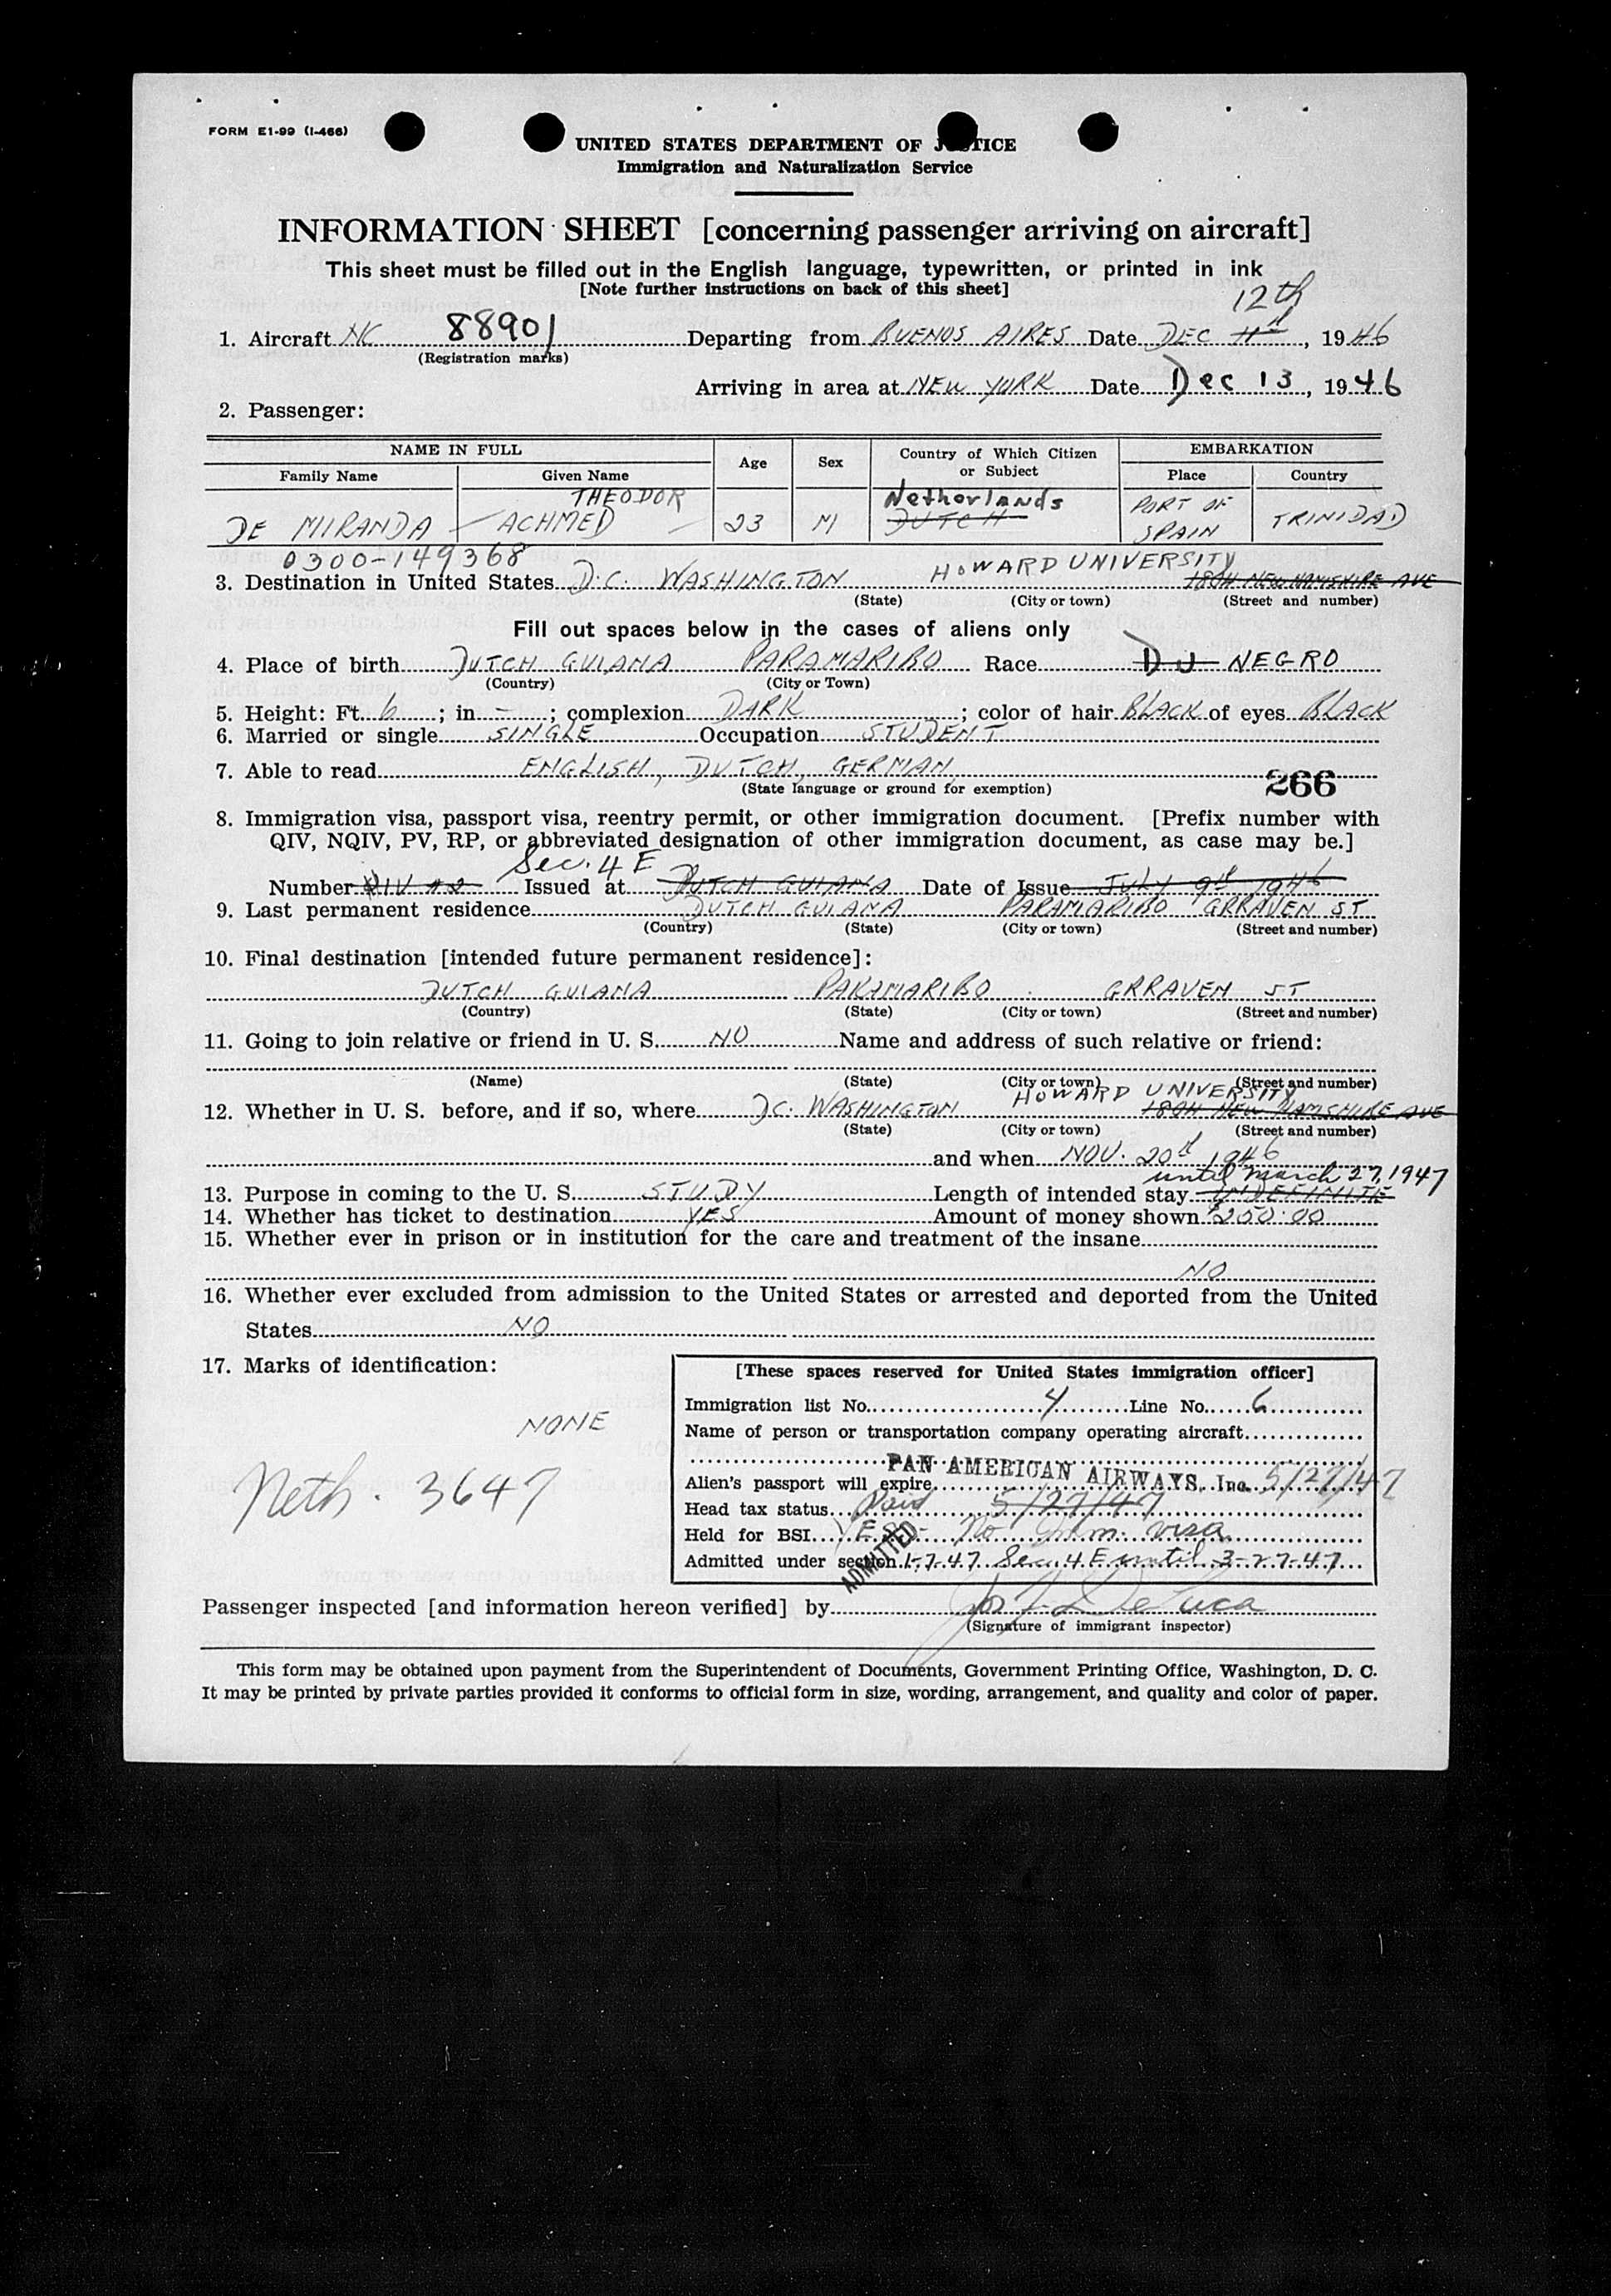 FORM E1-99 (I-466)
UNITED STATES DEPARTMENT OF JUSTICE
Immigration and Naturalization Service
INFORMATION SHEET [concerning passenger arriving on aircraft]
This sheet must be filled out in the English language, typewritten, or printed in ink
[Note further instructions on back of this sheet]
12th
1. Aircraft NC 88901 Departing from BUENOS AIRES Date DEC 11th, 1946
(Registration marks)
Arriving in area at NEW YORK Date Dec 13, 1946
2. Passenger:
NAME IN FULL Age Sex Country of Which Citizen or Subject EMBARKATION
Family Name Given Name Place Country
THEODOR Netherlands PORT OF
DE MIRANDA ACHMED 23 M DUTCH SPAIN TRINIDAD
0300-149368 HOWARD UNIVERSITY
3. Destination in United States D.C. WASHINGTON 1804 NEW HAMSHIRE AVE
(State) (City or town) (Street and number)
Fill out spaces below in the cases of aliens only
4. Place of birth DUTCH GUIANA PARAMARIBO Race DU NEGRO
(Country) (City or Town)
5. Height: Ft. 6; in. -; complexion DARK; color of hair BLACK of eyes BLACK
6. Married or single SINGLE Occupation STUDENT
7. Able to read ENGLISH, DUTCH, GERMAN
(State language or ground for exemption) 266
8. Immigration visa, passport visa, reentry permit, or other immigration document. [Prefix number with
QIV, NQIV, PV, RP, or abbreviated designation of other immigration document, as case may be.]
Sec. 4 E
Number Issued at DUTCH GUIANA Date of Issue JULY 9th 1946
9. Last permanent residence DUTCH GUIANA PARAMARIBO GRRAVEN ST
(Country) (State) (City or town) (Street and number)
10. Final destination [intended future permanent residence]:
DUTCH GUIANA PARAMARIBO GRRAVEN ST
(Country) (State) (City or town) (Street and number)
11. Going to join relative or friend in U. S. NO Name and address of such relative or friend:
(Name) (State) (City or town) (Street and number)
HOWARD UNIVERSITY
12. Whether in U. S. before, and if so, where DC. WASHINGTON 1804 NEW HAMSHIRE AVE
(State) (City or town) (Street and number)
and when NOV. 20th 1946
until March 27, 1947
13. Purpose in coming to the U. S. STUDY Length of intended stay INDEFINITE
14. Whether has ticket to destination YES Amount of money shown $200.00
15. Whether ever in prison or in institution for the care and treatment of the insane
NO
16. Whether ever excluded from admission to the United States or arrested and deported from the United
States NO
17. Marks of identification:
NONE
Neth. 3647
[These spaces reserved for United States immigration officer]
Immigration list No. 4 Line No. 6
Name of person or transportation company operating aircraft
PAN AMERICAN AIRWAYS, Inc.
Alien's passport will expire 5/27/47
Head tax status Paid 5/27/47
Held for BSI YES- No Imm. visa
ADMITTED
Admitted under section 1-7-47 Sec. 4 E until 3-27-47
Passenger inspected [and information hereon verified] by Jos. F. De Luca
(Signature of immigrant inspector)
This form may be obtained upon payment from the Superintendent of Documents, Government Printing Office, Washington, D. C.
It may be printed by private parties provided it conforms to official form in size, wording, arrangement, and quality and color of paper.